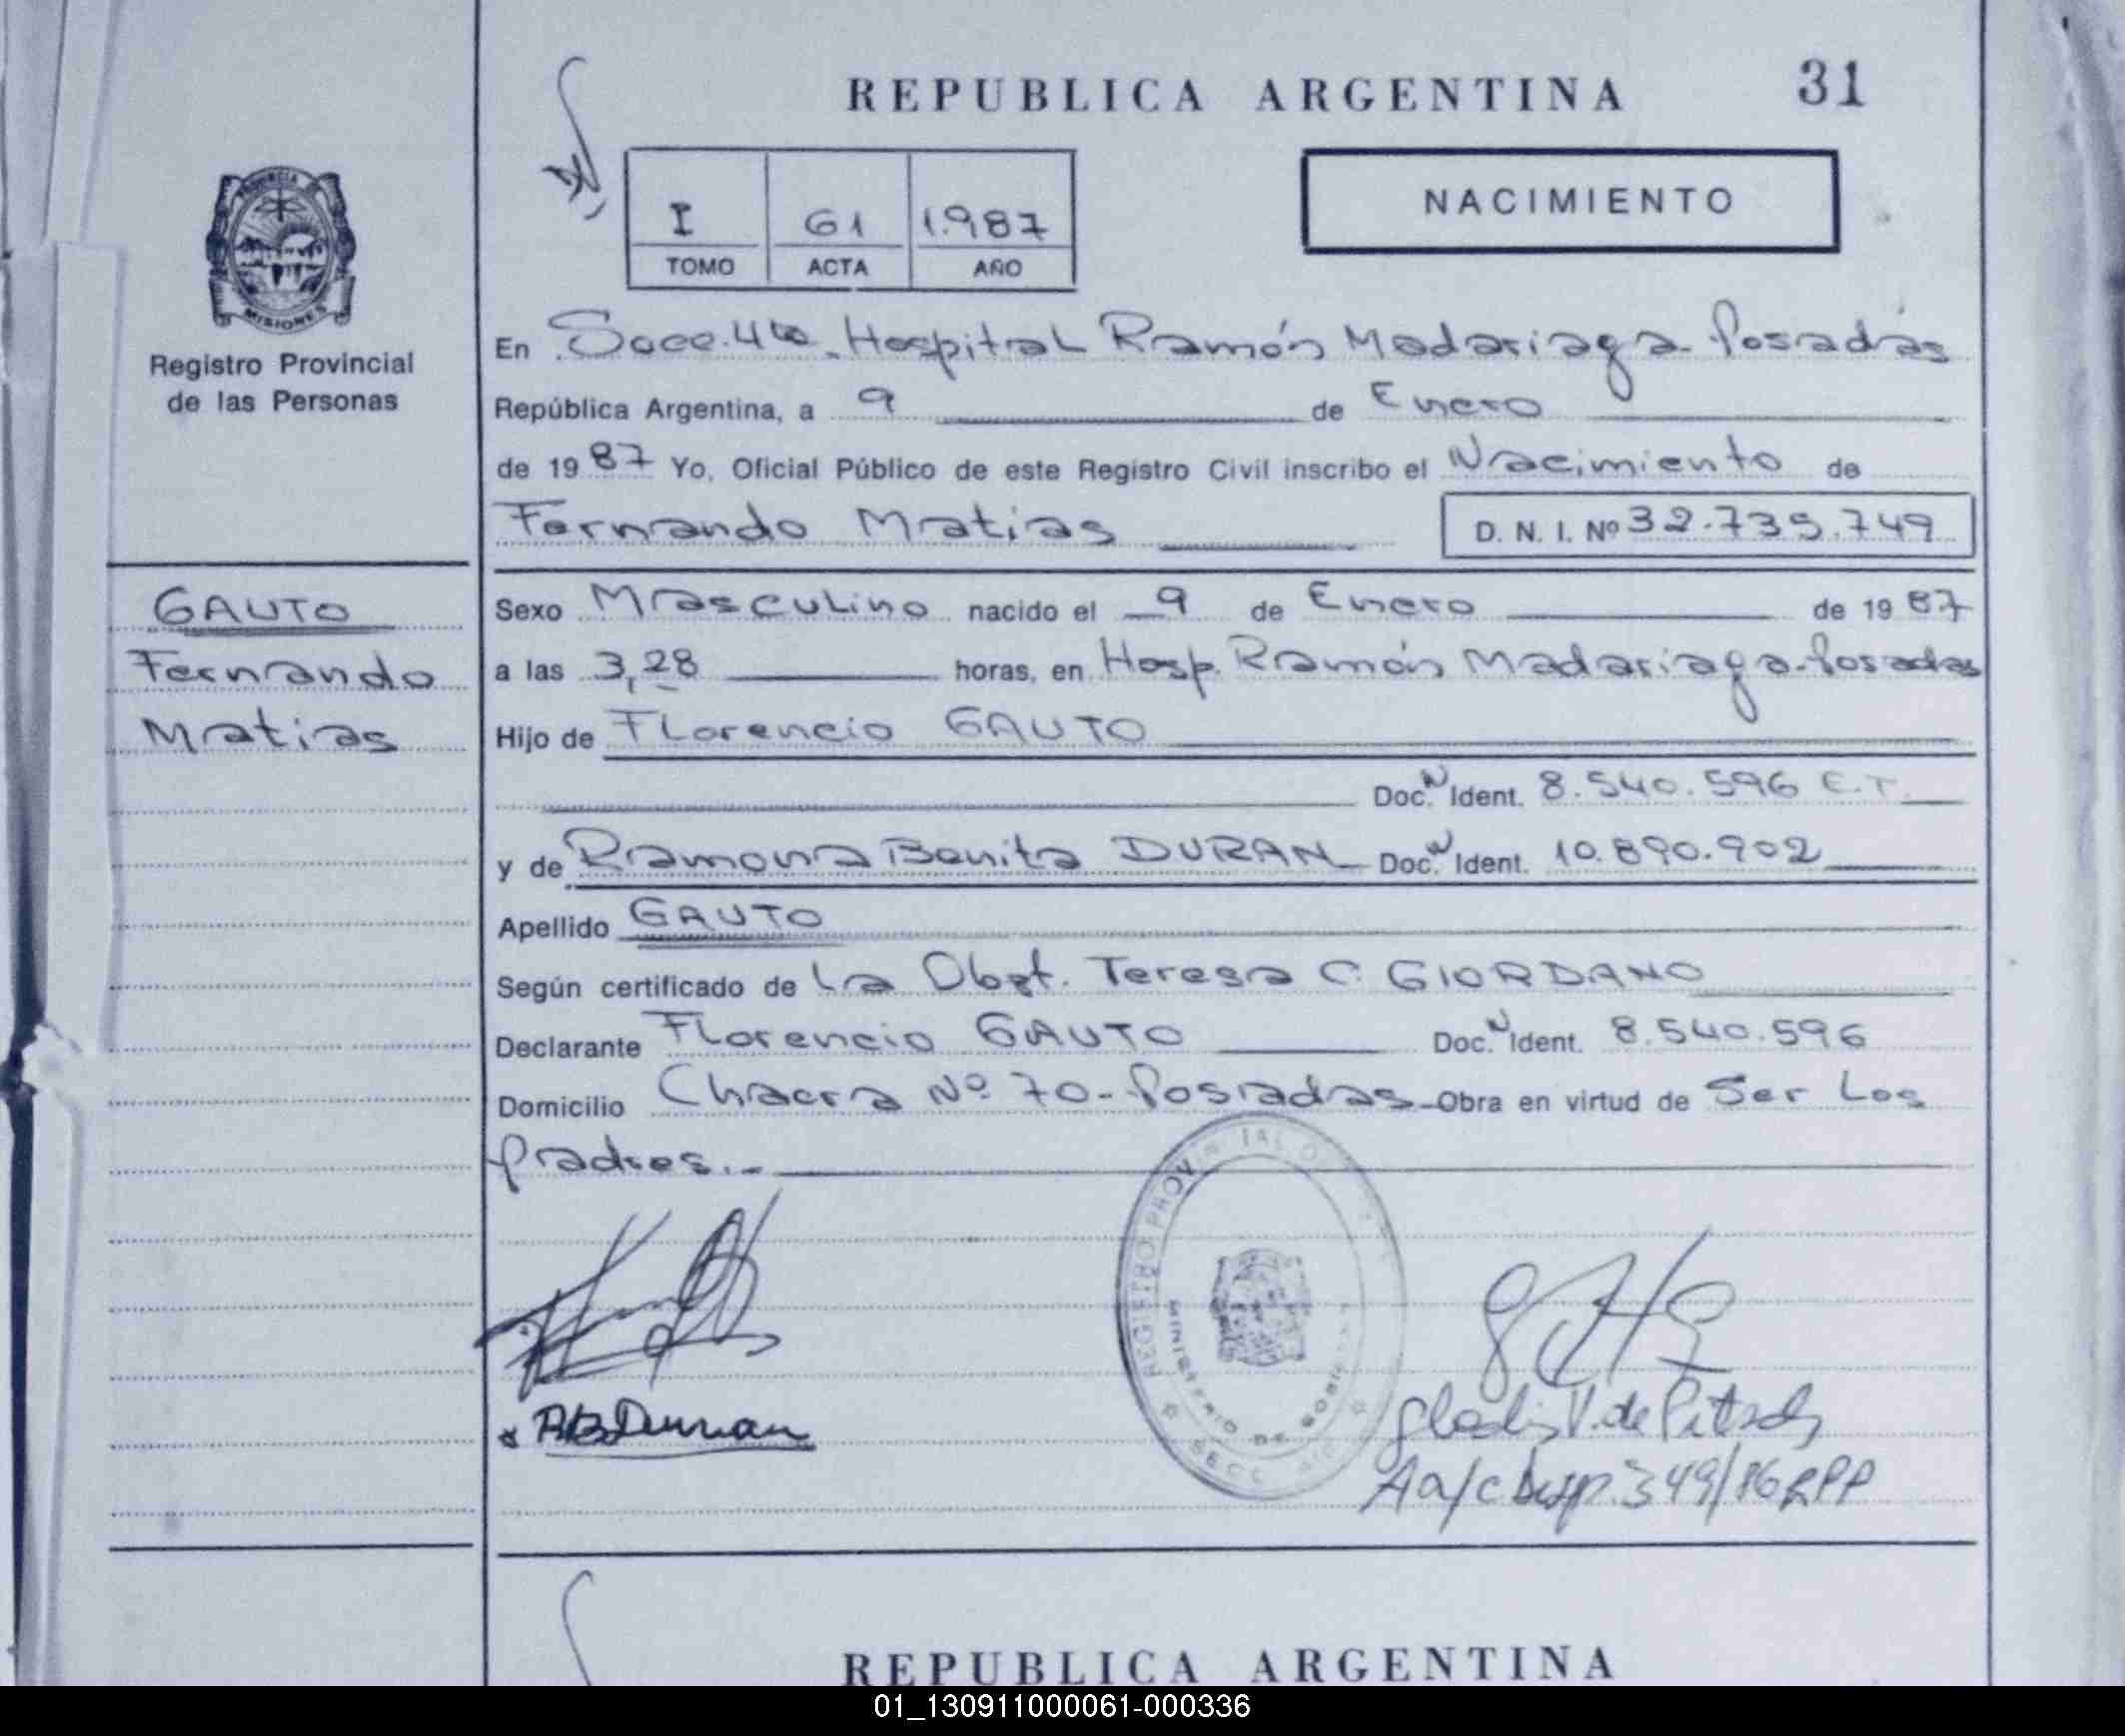 REPUBLICA ARGENTINA 31
NACIMIENTO
I 61 1.987
TOMO ACTA AÑO
PROVINCIA
MISIONES
Registro Provincial
de las Personas
En Secc. 4ta. Hospital Ramón Madariaga Posadas
República Argentina, a 9 de Enero
de 1987 Yo, Oficial Público de este Registro Civil inscribo el Nacimiento de
Fernando Matias D. N. I. Nº 32.735.749
GAUTO
Fernando
Matias
Sexo Masculino nacido el 9 de Enero de 1987
a las 3,28 horas, en Hosp. Ramón Madariaga-Posadas
Hijo de Florencio GAUTO
Doc. N Ident. 8.540.596 E.T.
y de Ramona Benita DURAN Doc. N Ident. 10.890.902
Apellido GAUTO
Según certificado de La Obst. Teresa C. GIORDANO
Declarante Florencio GAUTO Doc. N Ident. 8.540.596
Domicilio Chacra Nº 70-Posadas-Obra en virtud de Ser Los
padres.-
REGISTRO PROVINCIAL
MINISTERIO DE GOBIERNO
RBDuran
Gladis V. de Pitsch
A a/c Disp. 349/86 RPP
REPUBLICA ARGENTINA
01_130911000061-000336